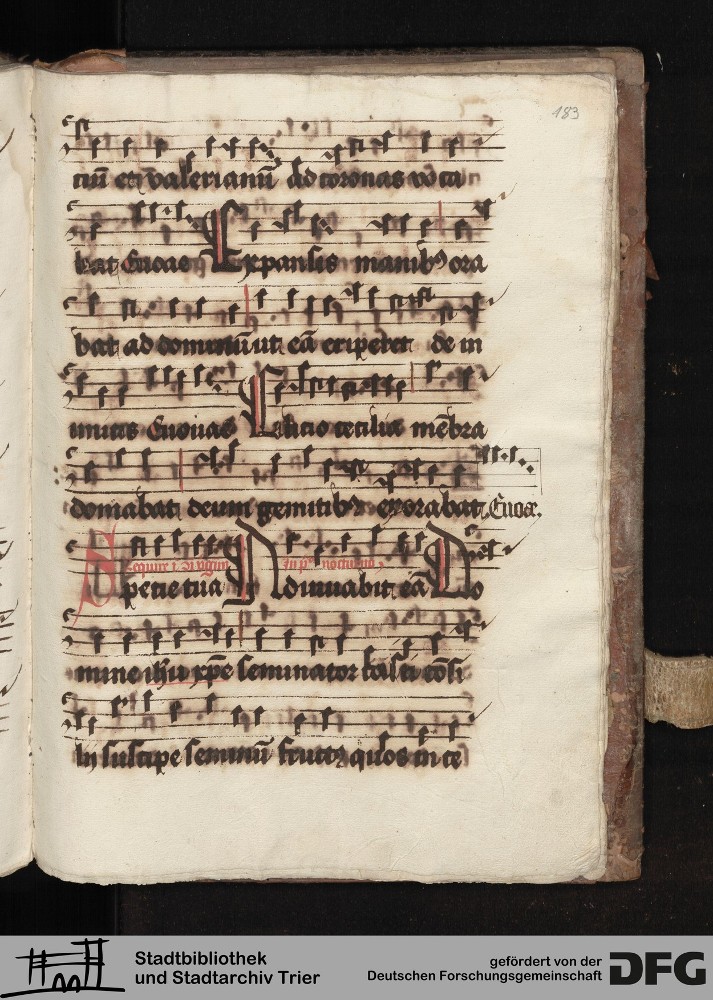 183
ciū et valerianū ad coronas voca
bat Euouae Expansis manibꝰ ora
bat ad dominū ut eā eriperet de in
imicis Euouae Cilicio cecilia mēbra
domabat deum gemitibꝰ exorabat Euoae.
In pº nocturno
Specie tua Adiuuabit eā Do
mine ihū xpe seminator casti cōsi
lij suscipe seminū fructꝰ quos in ce
Stadtbibliothek
und Stadtarchiv Trier
gefördert von der
Deutschen Forschungsgemeinschaft
DFG